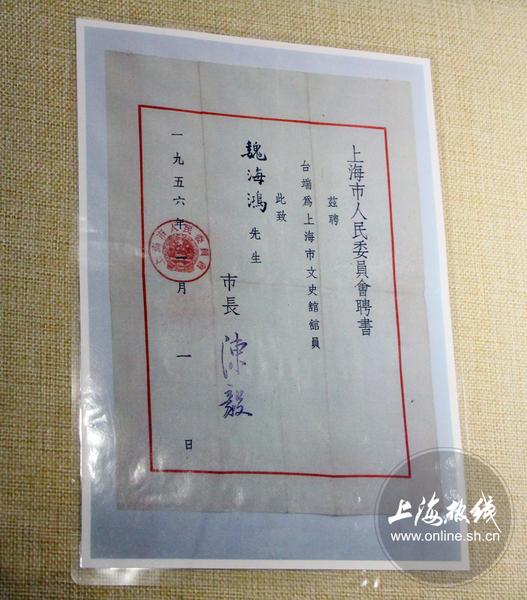 上海市人民委員會聘書
茲聘
台端爲上海市文史館館員
此致
魏海鴻先生
市長 陳毅
一九五六年二月一日
上海市人民委員會
上海热线
www.online.sh.cn